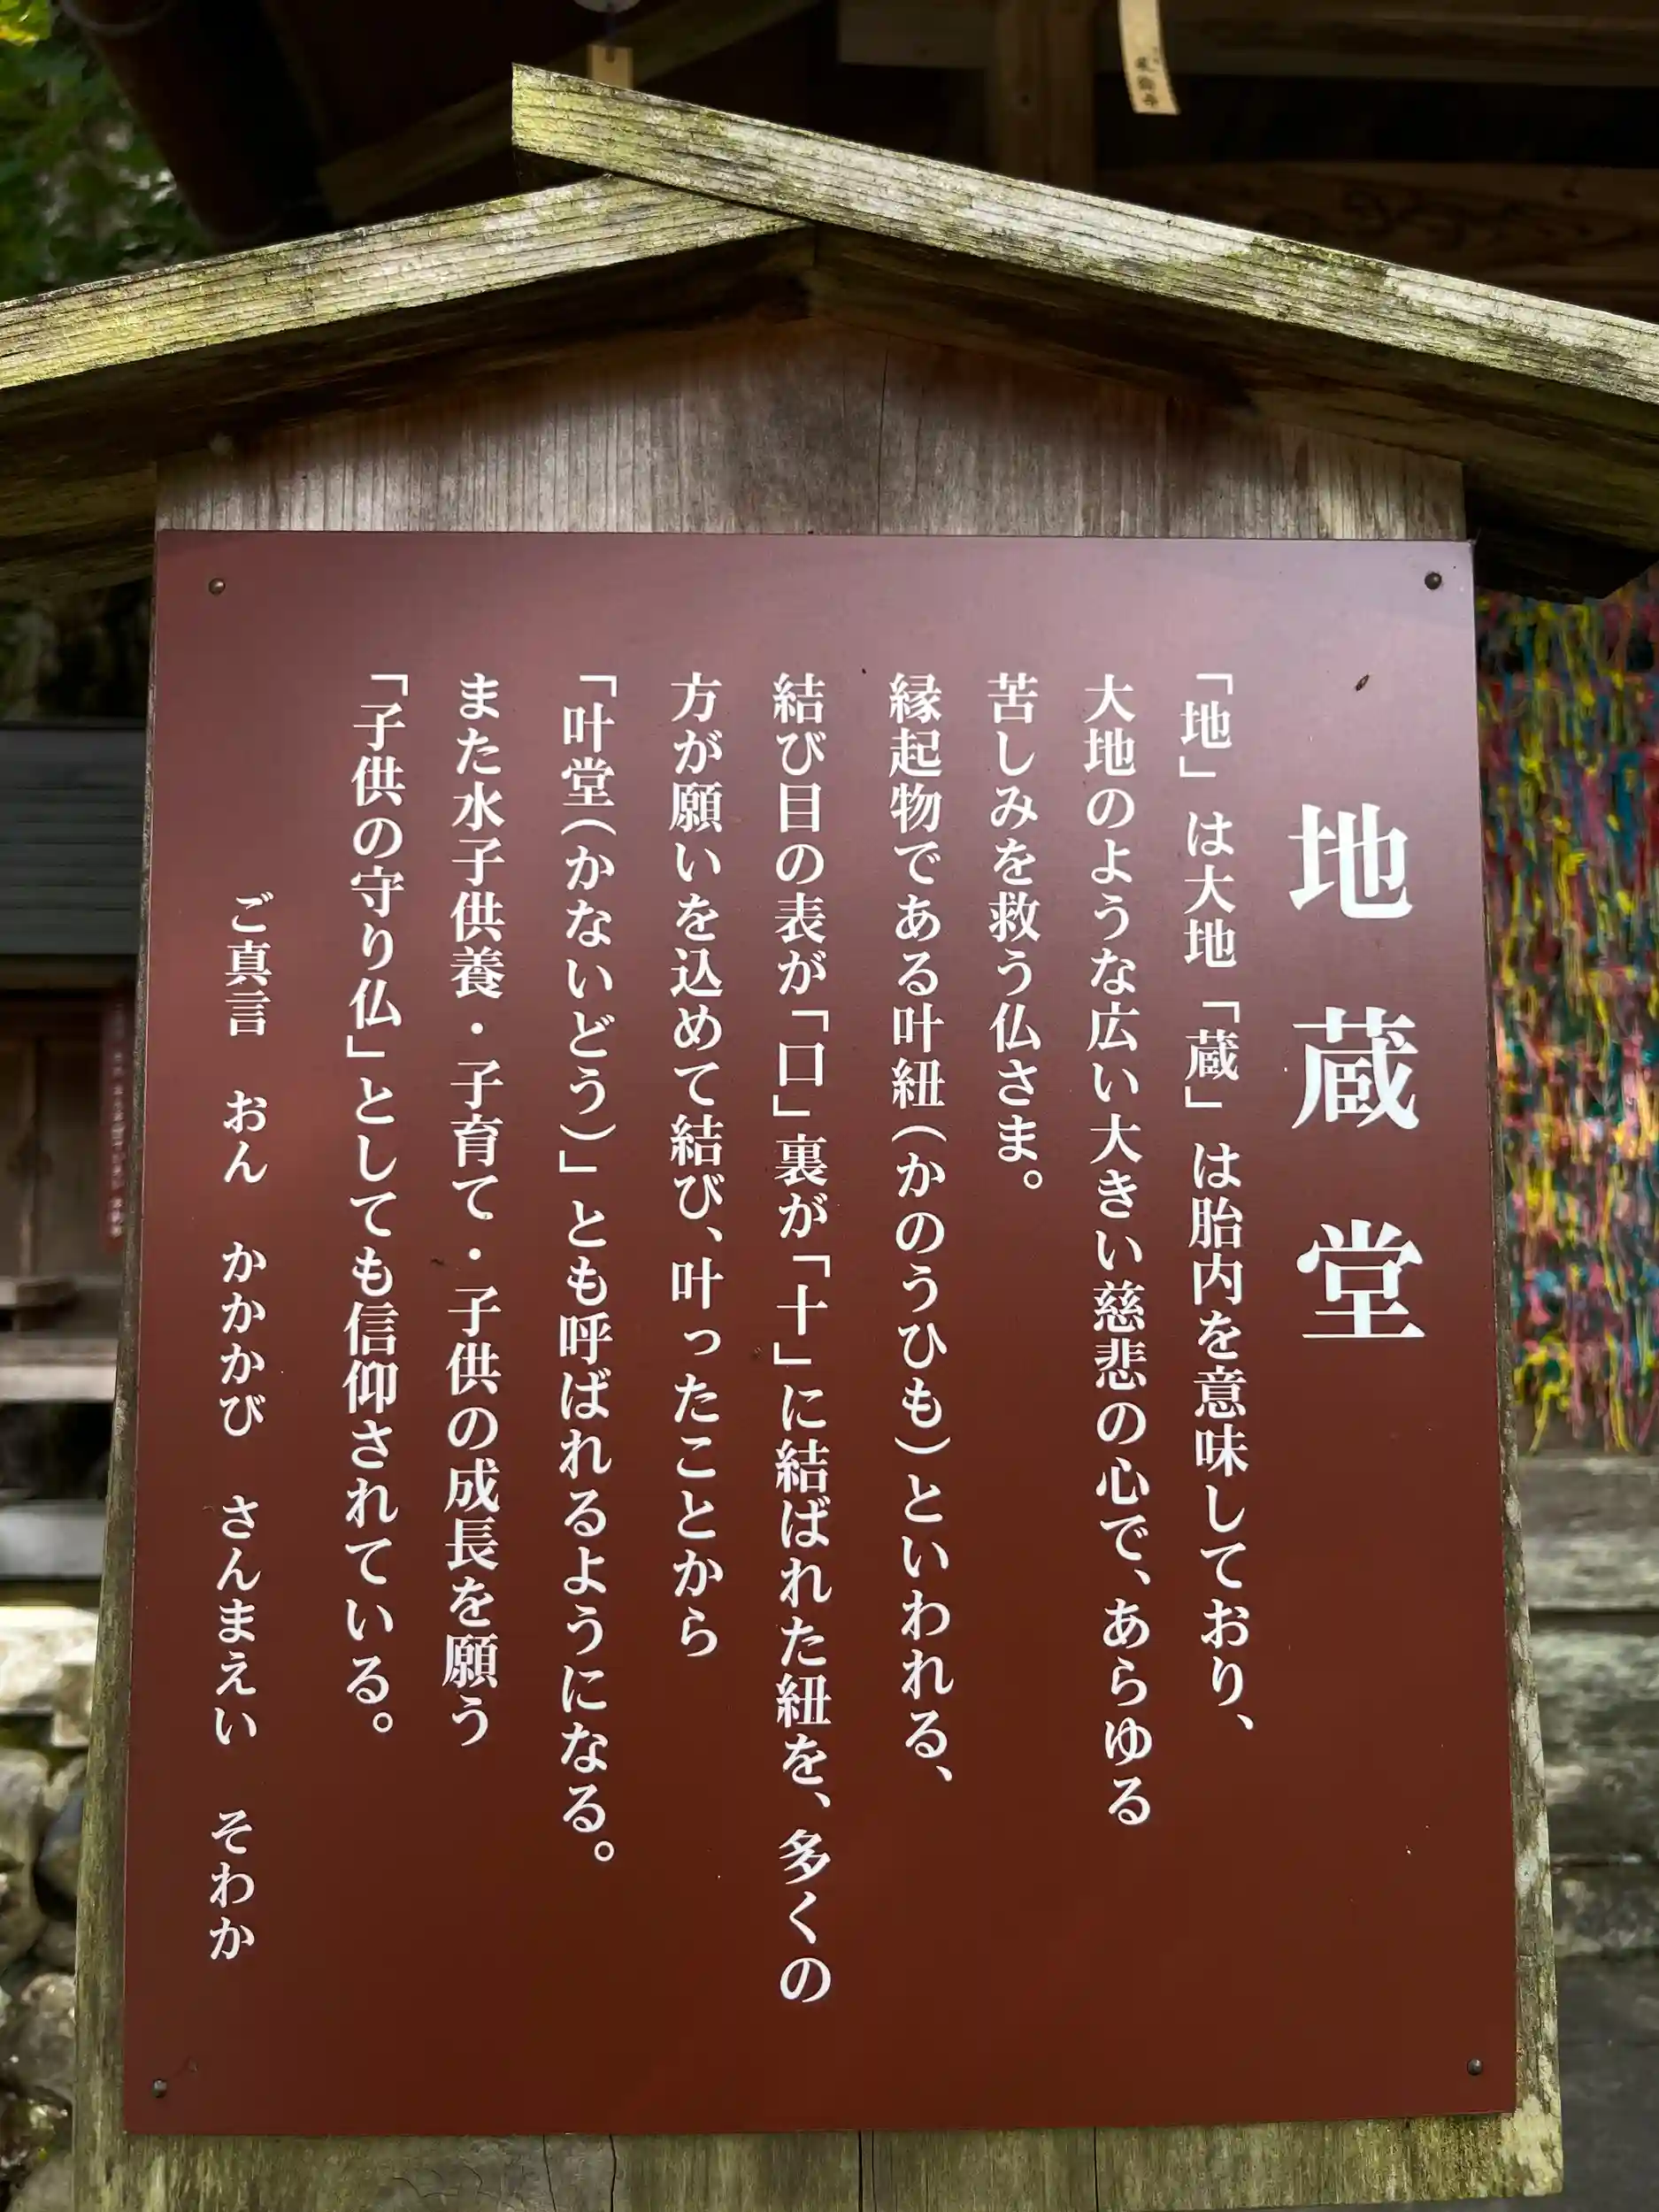 地蔵堂
「地」は大地「蔵」は胎内を意味しており、
大地のような広い大きい慈悲の心で、あらゆる
苦しみを救う仏さま。
縁起物である叶紐(かのうひも)といわれる、
結び目の表が「口」裏が「十」に結ばれた紐を、多くの
方が願いを込めて結び、叶ったことから
「叶堂(かないどう)」とも呼ばれるようになる。
また水子供養・子育て・子供の成長を願う
「子供の守り仏」としても信仰されている。
ご真言 おん かかかび さんまえい そわか